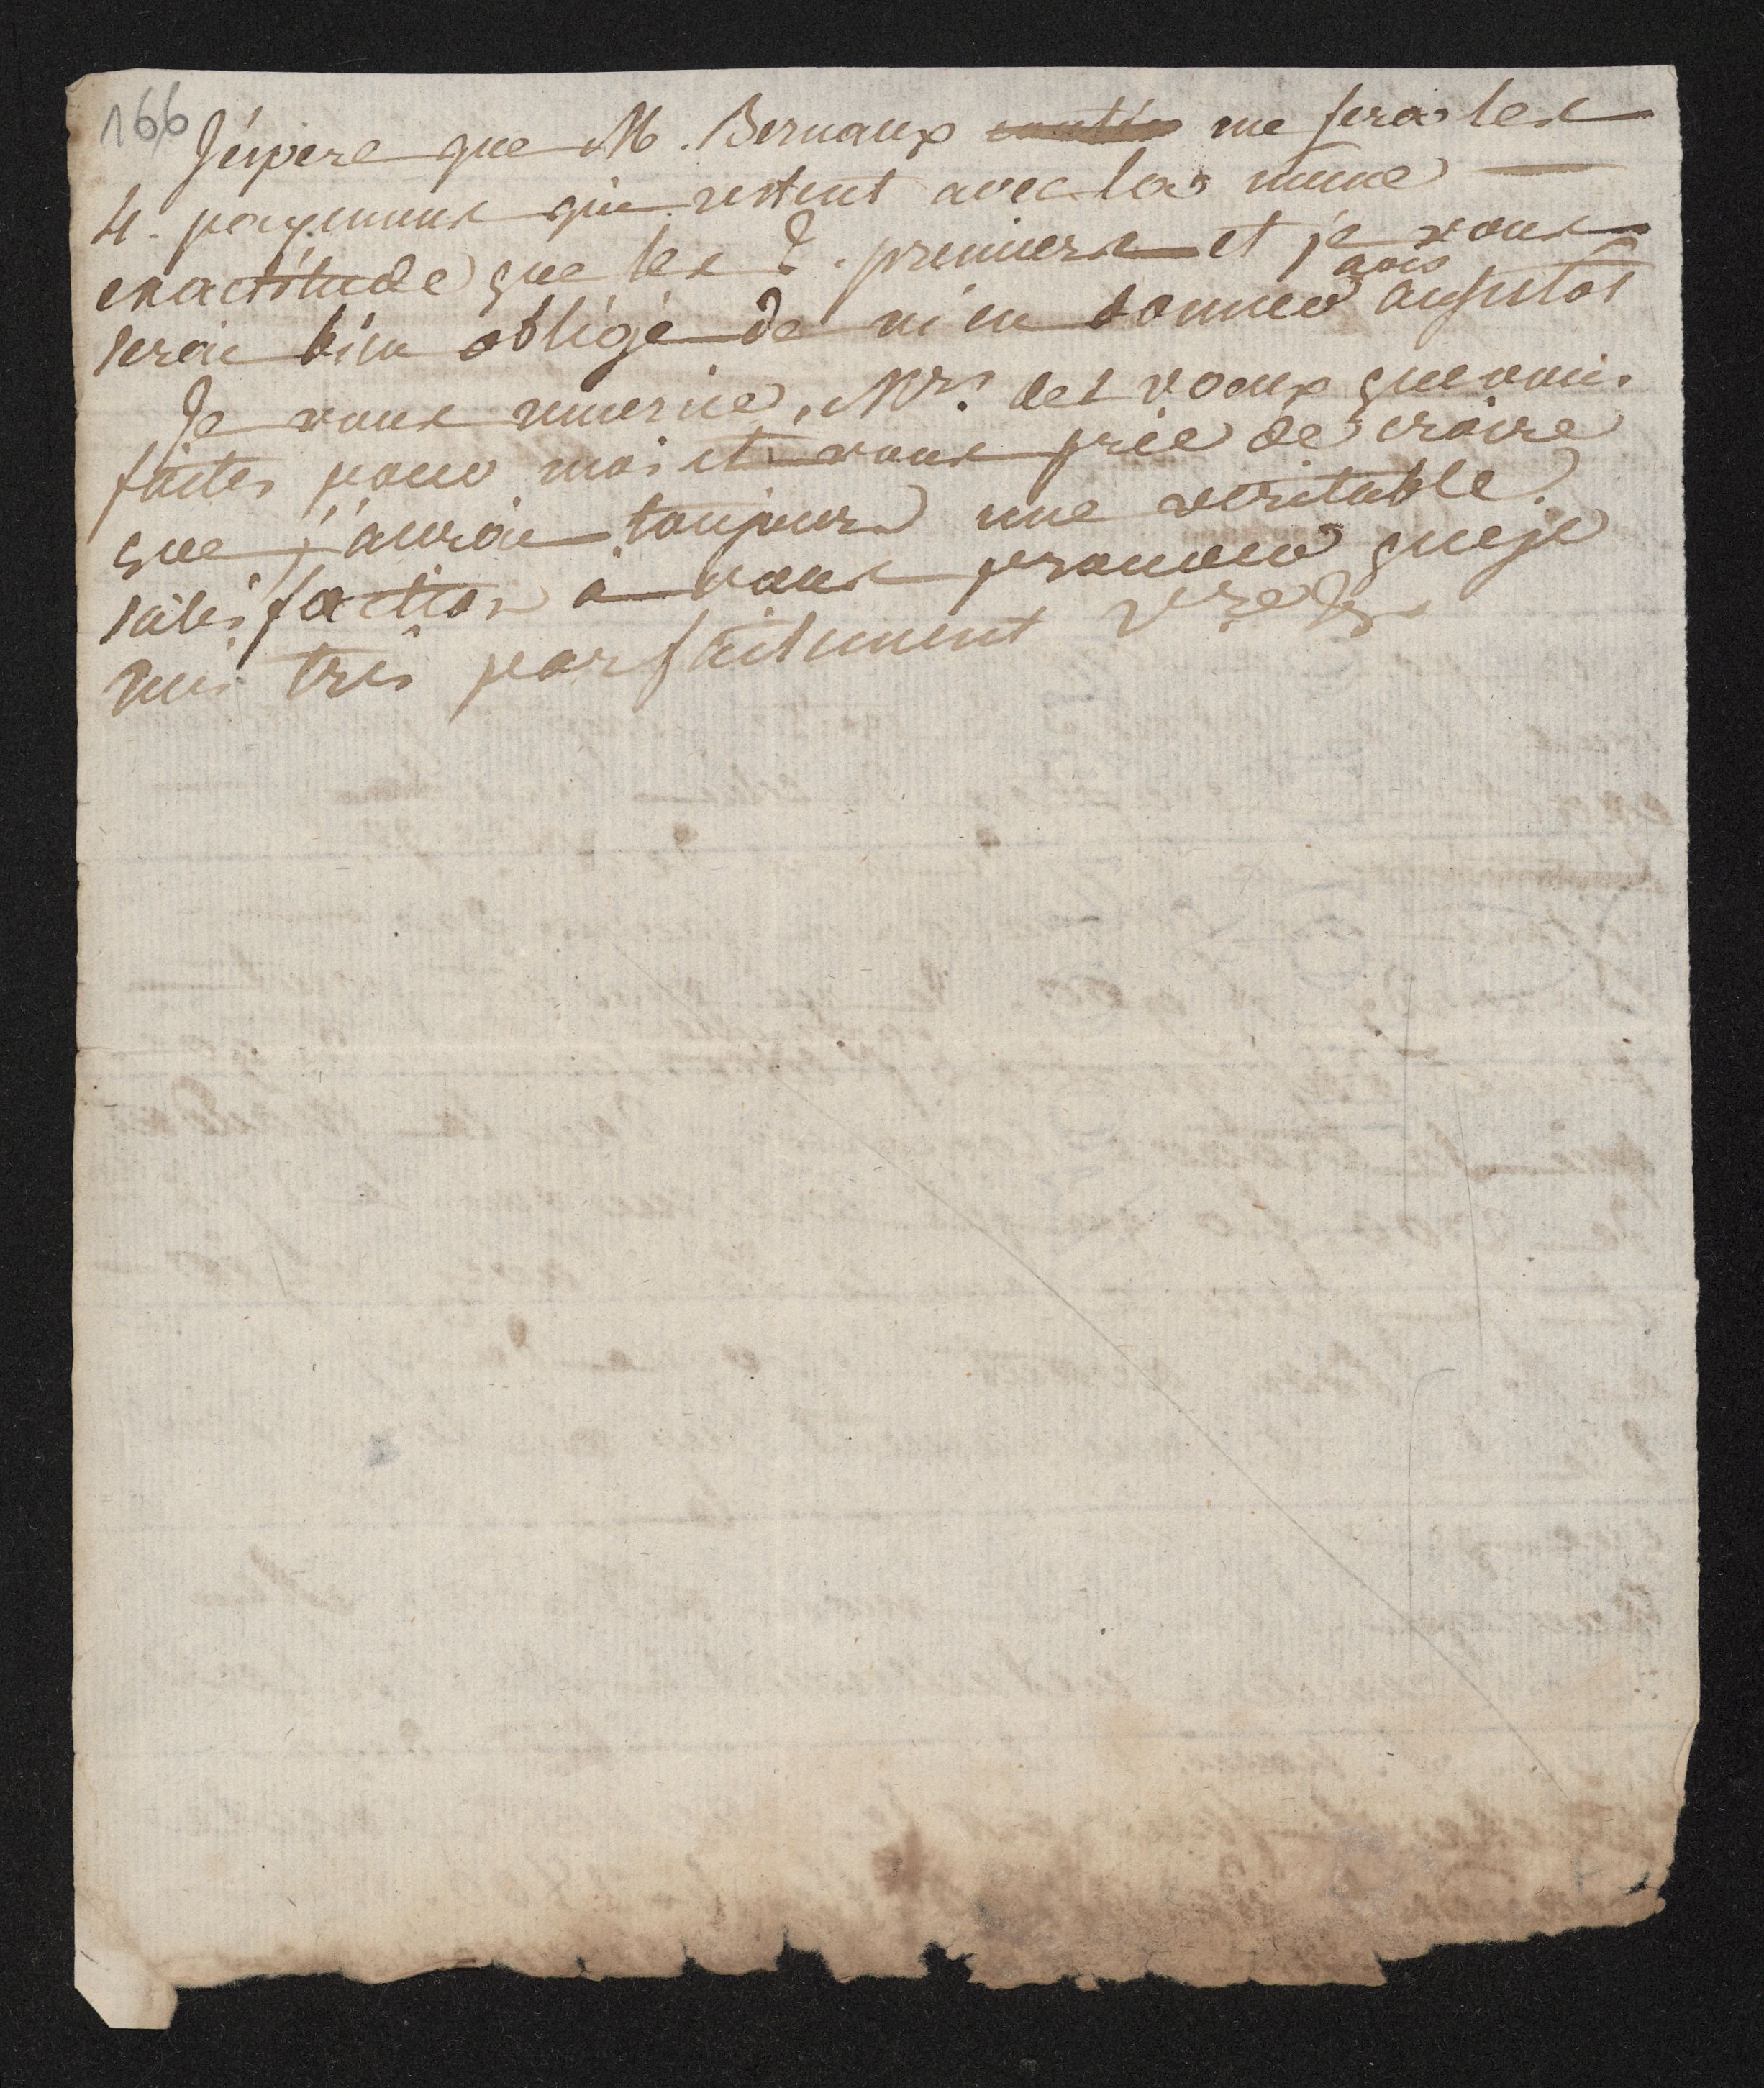 166
J'espere que M. Bernaux me fera les
4. payemens qui restent avec la même
exactitude que les 2. premiers et je vous
avis
serai bien obligé de m'en donner aussitôt
Je vous remercie, Mrs. des voeux que vous
faites pour moi et vous prie de croire
que j'aurai toujours une veritable
satisfaction à vous prouver que je
suis très parfaitement Vre &